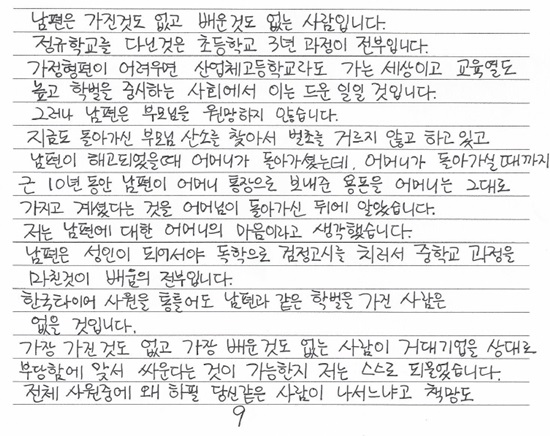 남편은 가진것도 없고 배운것도 없는 사람입니다.
정규학교를 다닌것은 초등학교 3년 과정이 전부입니다.
가정형편이 어려우면 산업체고등학교라도 가는 세상이고 교육열도
높고 학벌을 중시하는 사회에서 이는 드문 일일 것입니다.
그러나 남편은 부모님을 원망하지 않습니다.
지금도 돌아가신 부모님 산소를 찾아서 벌초를 거르지 않고 하고 있고
남편이 해고되었을때 어머니가 돌아가셨는데, 어머니가 돌아가실 때까지
근 10년 동안 남편이 어머니 통장으로 보내준 용돈을 어머니는 그대로
가지고 계셨다는 것을 어머님이 돌아가신 뒤에 알았습니다.
저는 남편에 대한 어머니의 마음이라고 생각했습니다.
남편은 성인이 되어서야 독학으로 검정고시를 치러서 중학교 과정을
마친것이 배움의 전부입니다.
한국타이어 사원을 통틀어도 남편과 같은 학벌을 가진 사람은
없을 것입니다.
가장 가진것도 없고 가장 배운것도 없는 사람이 거대기업을 상대로
부당함에 앞서 싸운다는 것이 가능한지 저는 스스로 되물었습니다.
전체 사원중에 왜 하필 당신같은 사람이 나서느냐고 책망도
9